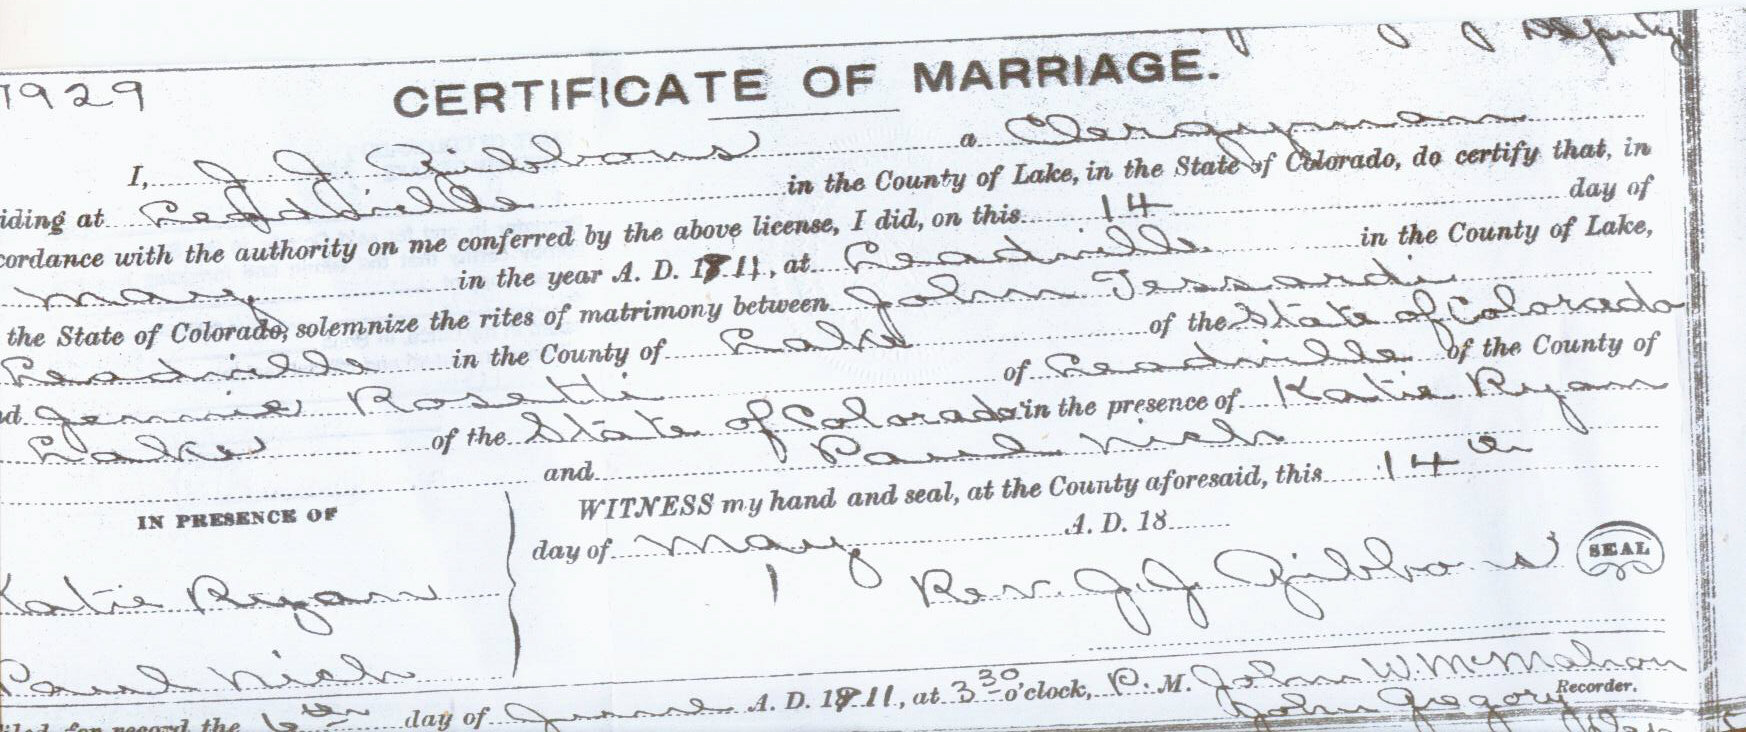 Deputy
7929
CERTIFICATE OF MARRIAGE.
I, J. J. Gibbons a Clergyman
iding at Leadville in the County of Lake, in the State of Colorado, do certify that, in
cordance with the authority on me conferred by the above license, I did, on this 14 day of
May in the year A. D. 1911, at Leadville in the County of Lake,
the State of Colorado, solemnize the rites of matrimony between John Tessardi
Leadville in the County of Lake of the State of Colorado
nd Jennie Rosetti of Leadville of the County of
Lake of the State of Colorado in the presence of Katie Ryan
and Paul Nish
WITNESS my hand and seal, at the County aforesaid, this 14th
day of May A. D. 18
IN PRESENCE OF
Katie Ryan
Paul Nish
Rev. J. J. Gibbons SEAL
iled for record the 6th day of June A. D. 1911, at 3 30 o'clock, P. M. John W. McMahon
Recorder.
John Gregory